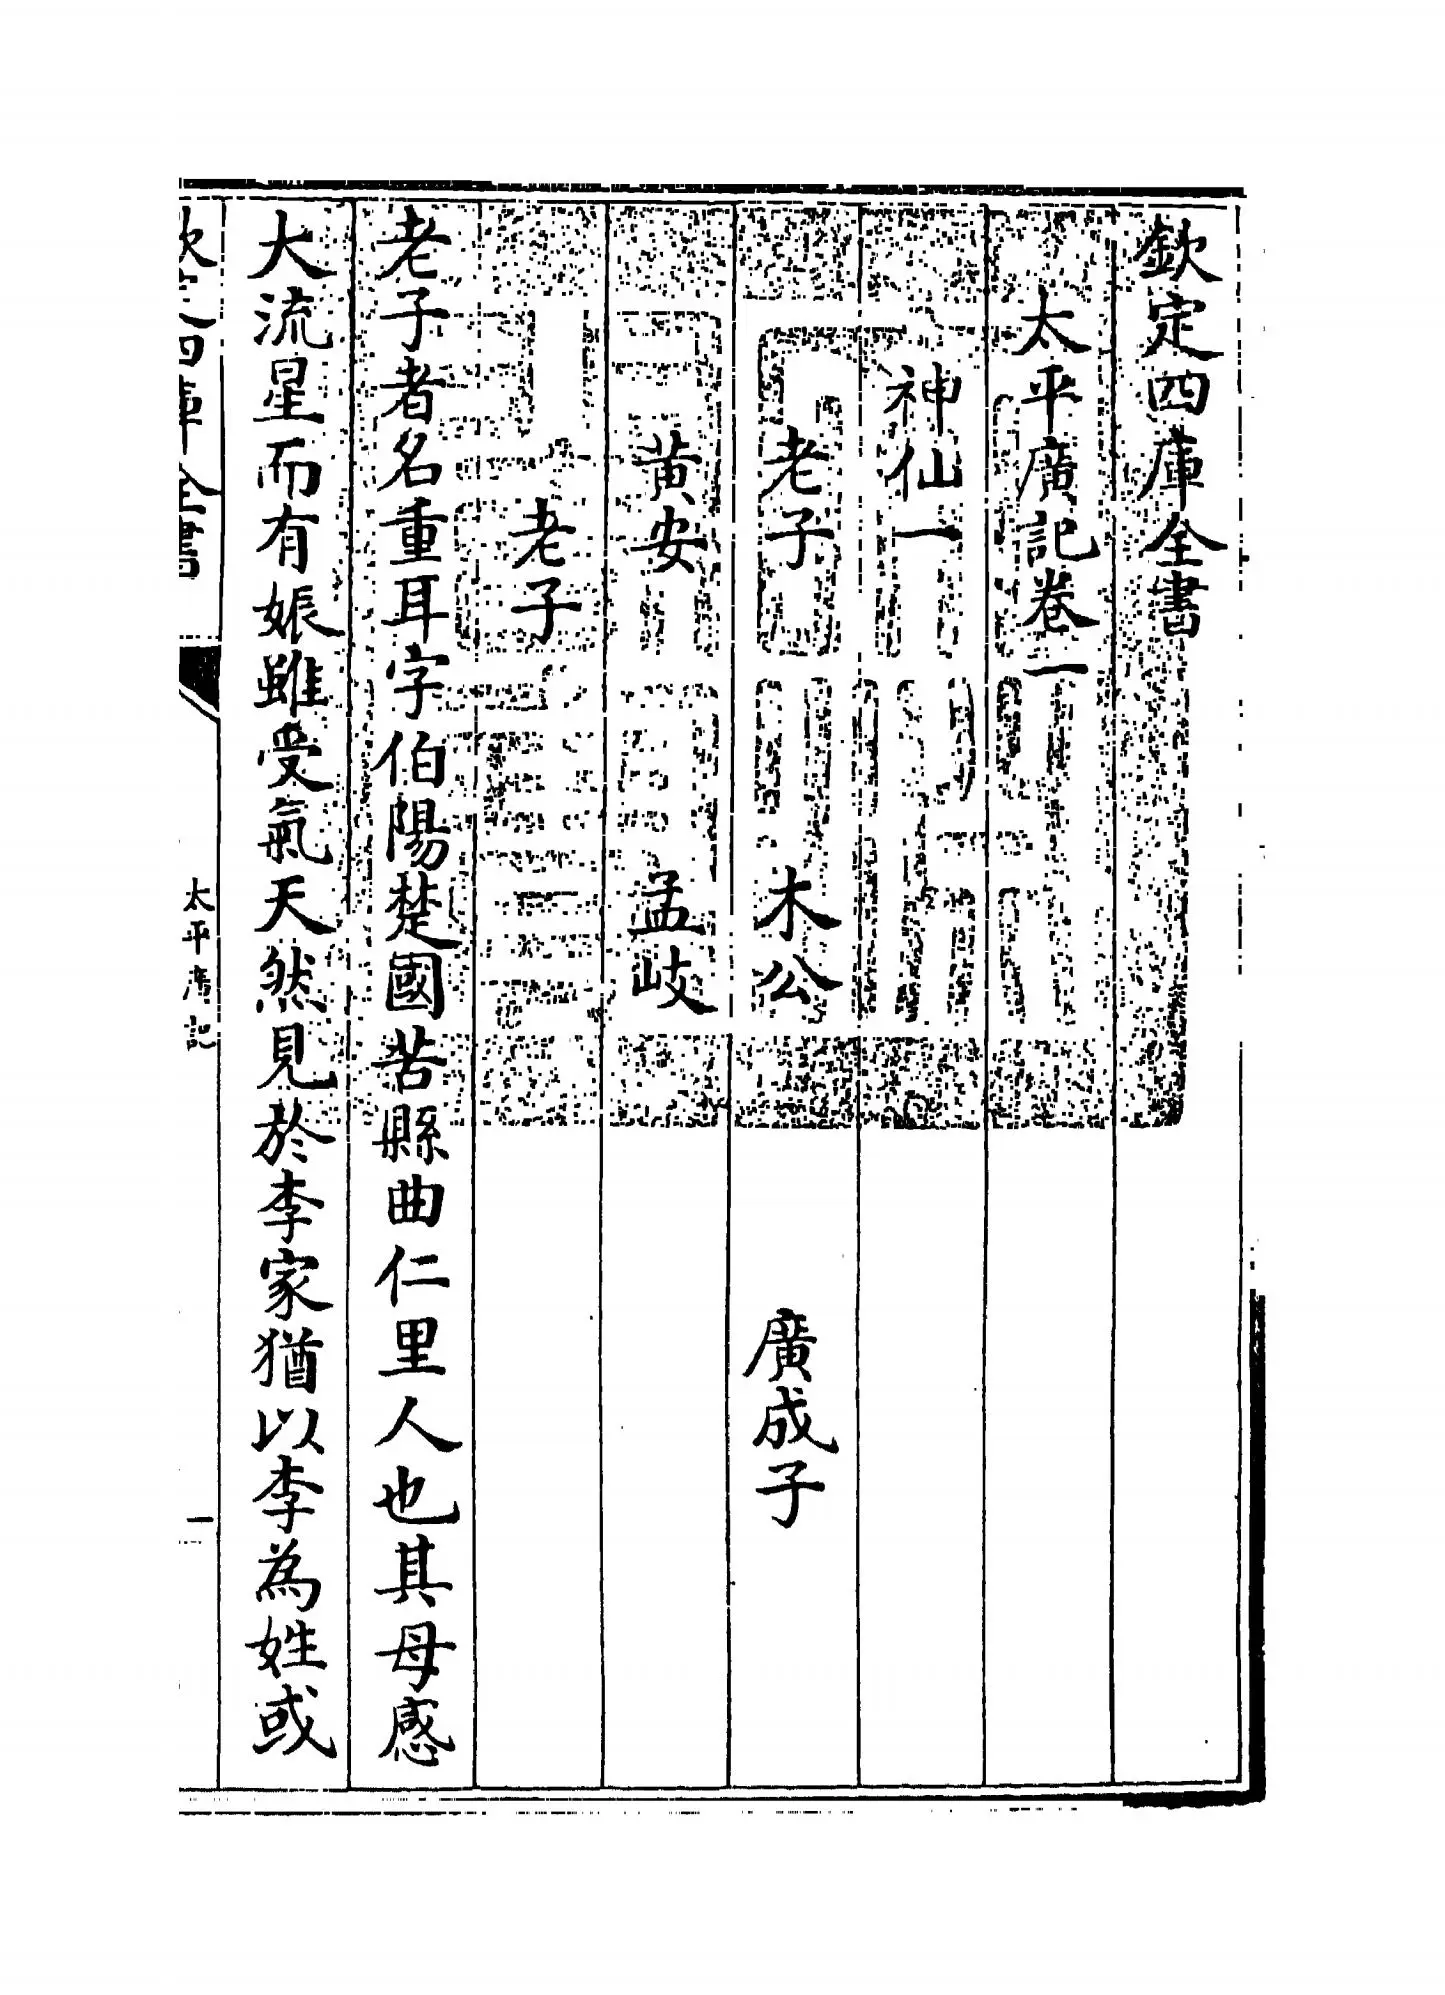 欽定四庫全書
太平廣記卷一
神仙一
老子 木公 廣成子
黃安 孟岐
老子
老子者名重耳字伯陽楚國苦縣曲仁里人也其母感
大流星而有娠雖受氣天然見於李家猶以李為姓或
欽定四庫全書
太平廣記
一